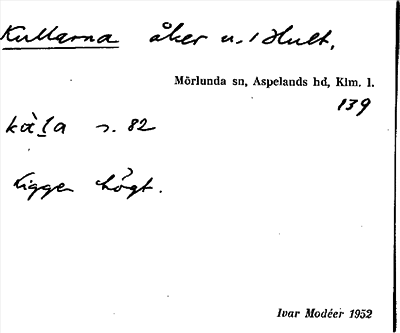 Kullarna åker u. 1 Hult.
Mörlunda sn, Aspelands hd, Klm. l.
139
s. 82
Ligger högt.
Ivar Modéer 1952